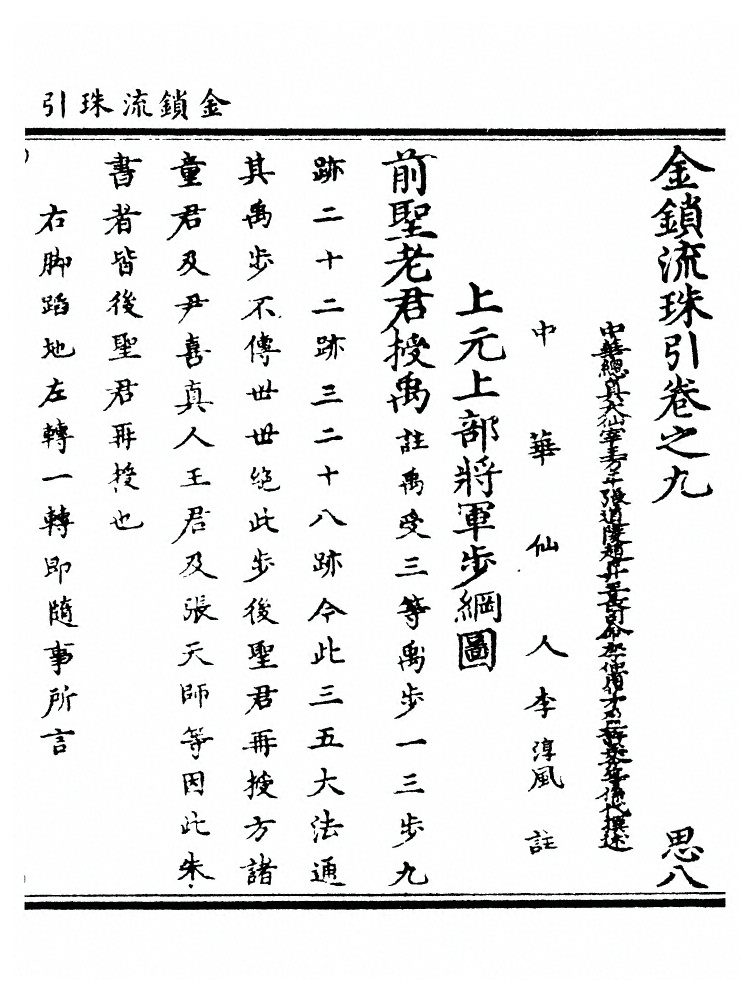 金鎖流珠引
金鎖流珠引卷之九 思八
中華總真大仙宰王方平張道陵趙昇王長司命李仲甫等係代撰述
中華仙人李淳風註
上元上部將軍步綱圖
前聖老君授禹註禹受三等禹步一三步九
跡二十二跡三二十八跡今此三五大法通
其禹步不傳世世絕此步後聖君再授方諸
童君及尹喜真人王君及張天師等因此朱
書者皆後聖君再授也
右脚蹈地左轉一轉即隨事所言